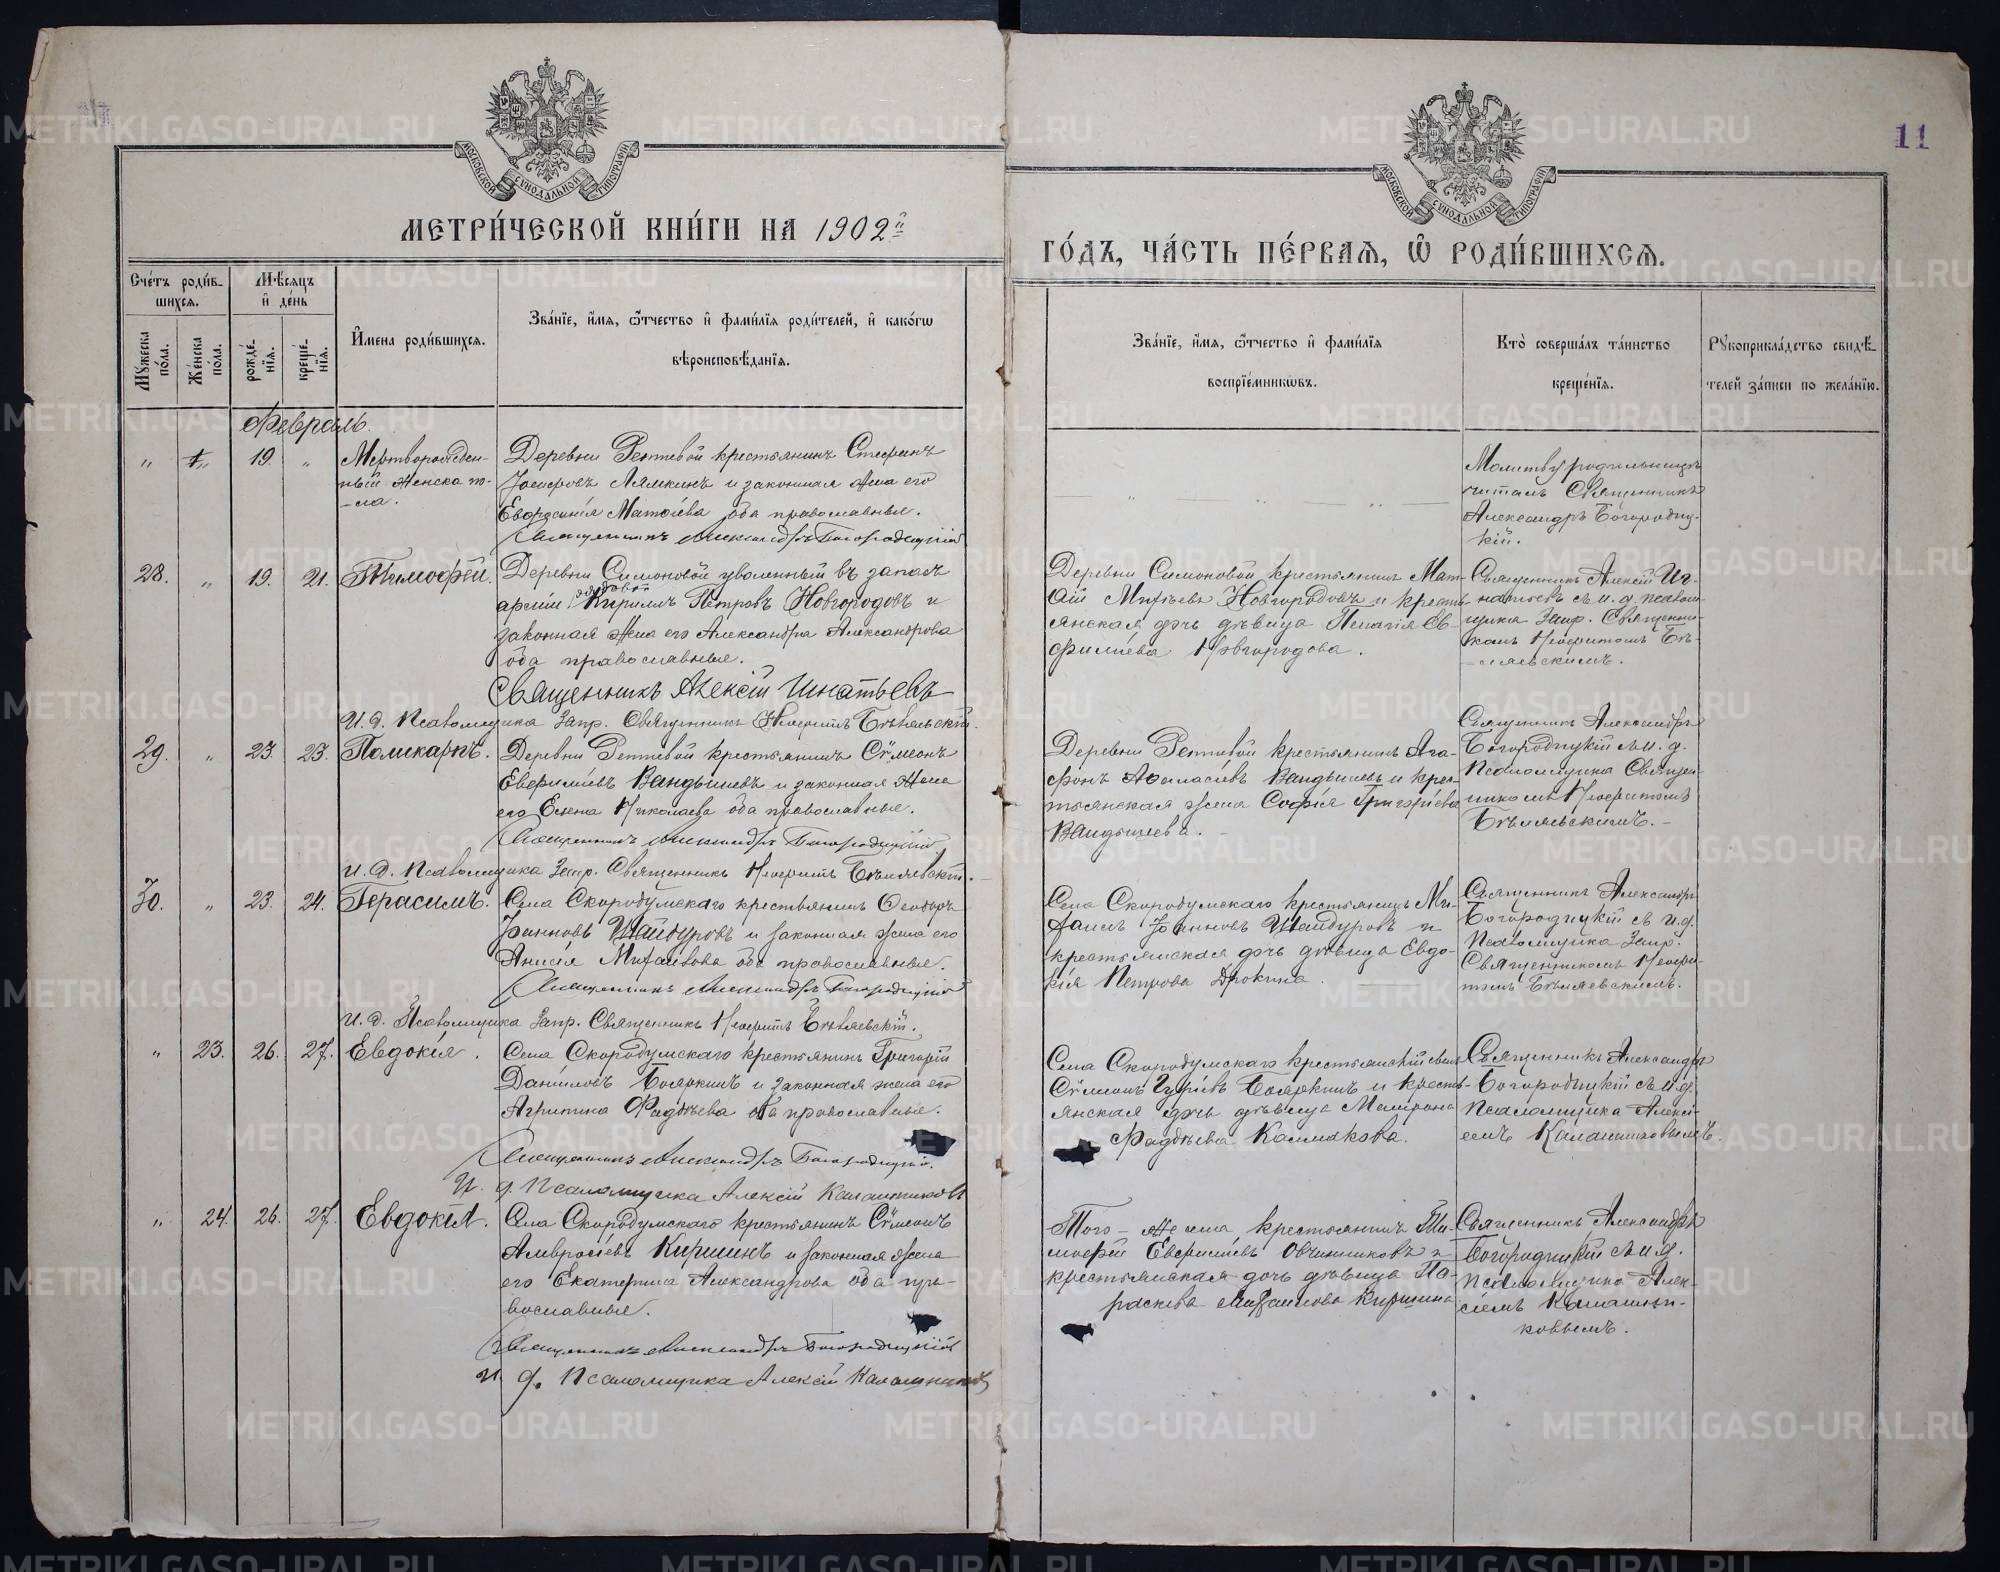 11
МОСКОВСКОЙ СУНОДАЛЬНОЙ ТИПОГРАФІИ
МОСКОВСКОЙ СУНОДАЛЬНОЙ ТИПОГРАФІИ
МЕТРИ́ЧЕСКОЙ КНИ́ГИ НА 1902й
ГО́ДЪ, ЧА́СТЬ ПЕ́РВАЯ, Ѡ РОДИ́ВШИХСЯ.
Сче́тъ роди́в-
шихся.
Мѣ́сяцъ
и де́нь
Му́жеска по́ла.
Же́нска по́ла.
рожде́-нія.
креще́-нія.
И́мена роди́вшихся.
Зва́ніе, и́мя, ѻ҆́тчество и фами́лія роди́телей, и како́гѡ
вѣроисповѣ́данія.
Зва́ніе, и́мя, ѻ҆́тчество и фами́лія
воспріе́мниковъ.
Кто̀ соверша́лъ та́инство
креще́нія.
Рукоприкла́дство свидѣ́-
телей за́писи по жела́нію.
Февраль.
19. Мертворожден-
ный женска по-
-ла.
Деревни Реттевой крестьянинъ Стефанъ
Лямкинъ и законная жена его
Матѳіева оба православные.
Священникъ Александръ Богородицкій
Молитву родильницѣ
читалъ Священникъ
Александръ Богородиц-
кій.
28. „ 19. 21. Тимофей.
Деревни Симоновой уволенный въ запасъ
арміи рядовой Кириллъ Петровъ Новгородовъ и
законная жена его Александра Александрова
оба православные.
Священникъ Алексій Игнатьевъ
И. д. Псаломщика Запр. Священникъ Неофитъ Бѣляевскій.
Деревни Симоновой крестьянинъ Мат-
ѳій Новгородовъ и кресть-
янская дочь дѣвица Пелагія Ев-
фиміева Новгородова.
Священникъ Алексій Иг-
натьевъ съ и. д. псалом-
щика Запр. Священни-
комъ Неофитомъ Бѣ-
-ляевскимъ.
29. „ 23. 23. Поликарпъ.
Деревни Реттевой крестьянинъ Сѵмеонъ
Евфиміевъ Вандышевъ и законная жена
его Елена Николаева оба православные.
Священникъ Александръ Богородицкій
И. д. Псаломщика Запр. Священникъ Неофитъ Бѣляевскій.
Деревни Реттевой крестьянинъ Ага-
фонъ Аѳанасіевъ Вандышевъ и крес-
тьянская жена Софія Григоріева
Вандышева.
Священникъ Александръ
Богородицкій съ и. д.
Псаломщика Священ-
никомъ Неофитомъ
Бѣляевскимъ.
30. „ 23. 24. Герасимъ.
Села Скородумскаго крестьянинъ Ѳеодоръ
Іоанновъ Шайдуровъ и законная жена его
Анисія Михаилова оба православные.
Священникъ Александръ Богородицкій
И. д. Псаломщика Запр. Священникъ Неофитъ Бѣляевскій.
Села Скородумскаго крестьянинъ Ми-
хаилъ Іоанновъ Шайдуровъ и
крестьянская дочь дѣвица Евдо-
кія Петрова Дрокина
Священникъ Александръ
Богородицкій съ и. д.
Псаломщика Запр.
Священникомъ Неофи-
томъ Бѣляевскимъ.
„ 23. 26. 27. Евдокія.
Села Скородумскаго крестьянинъ Григорій
Даніиловъ Бояркинъ и законная жена его
Агриппина Фаддѣева оба православные.
Священникъ Александръ Богородицкій.
И. д. Псаломщика Алексій Калашниковъ
Села Скородумскаго крестьянскій сынъ
Сѵмеонъ Гуріевъ Бояркинъ и кресть-
янская дочь дѣвица Матрона
Фаддѣева Колмакова.
Священникъ Александръ
Богородицкій съ и. д.
Псаломщика Алексі-
емъ Калашниковымъ.
„ 24. 26. 27. Евдокія.
Села Скородумскаго крестьянинъ Сѵмеонъ
Амвросіевъ Киршинъ и законная жена
его Екатерина Александрова оба пра-
вославные.
Священникъ Александръ Богородицкій
и. д. Псаломщика Алексій Калашниковъ
Того-же села крестьянинъ Ти-
моѳей Овчинниковъ и
крестьянская дочь дѣвица Па-
раскева Михаилова Киршина
Священникъ Александръ
Богородицкій съ и. д.
Псаломщика Алек-
сіемъ Калашни-
ковымъ.
METRIKI.GASO-URAL.RU